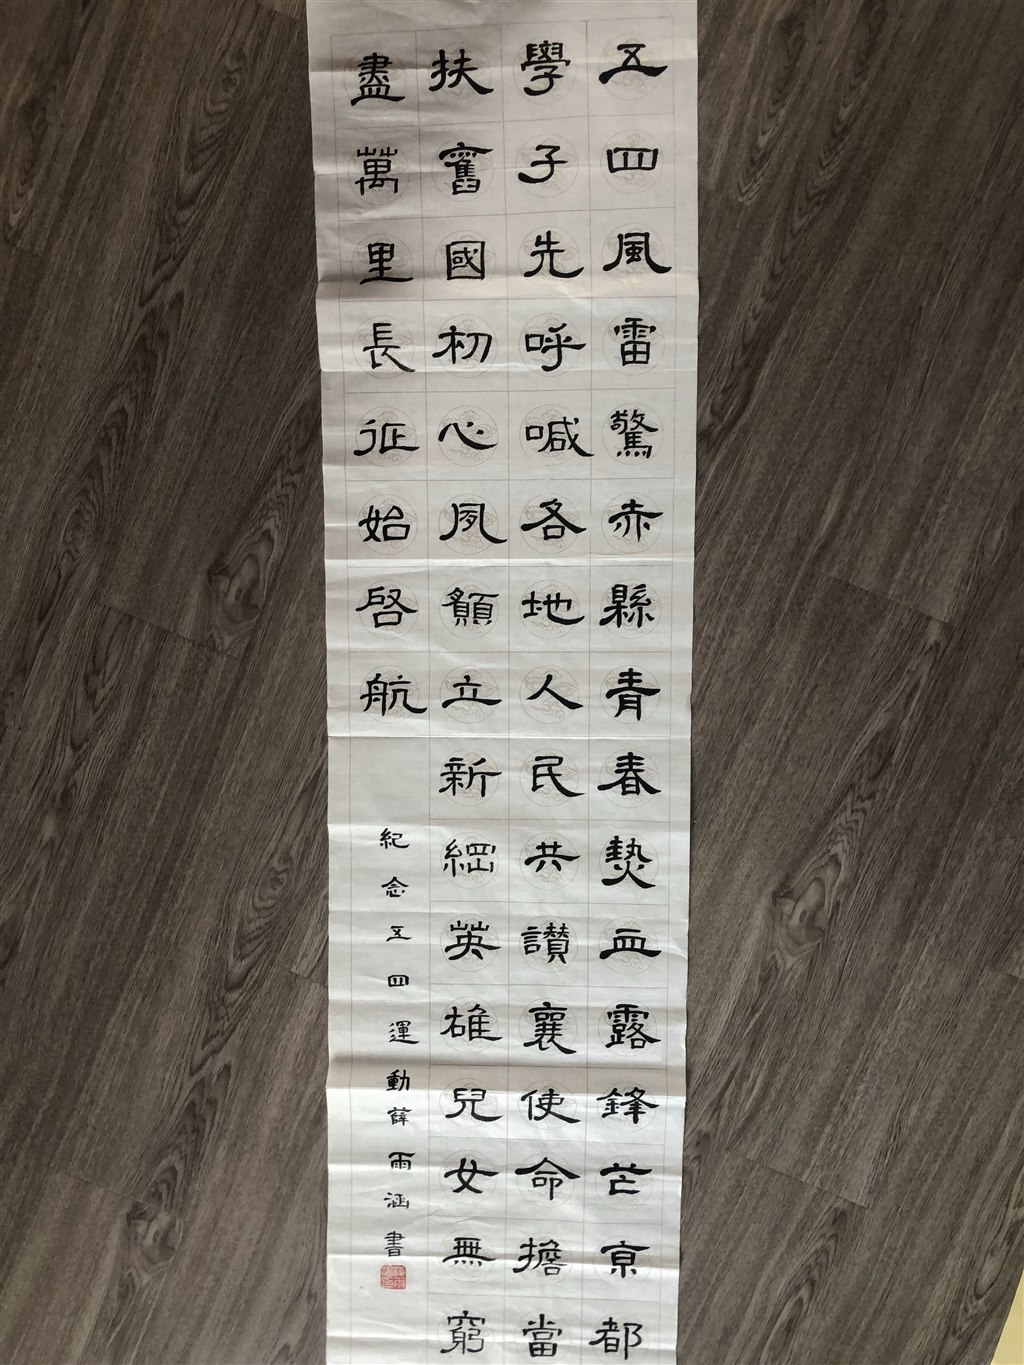 五四風雷驚赤縣青春熱血露鋒芒京都
學子先呼喊各地人民共讚襄使命擔當
扶舊國初心夙願立新綱英雄兒女無窮
盡萬里長征始啓航
紀念五四運動薛雨涵書